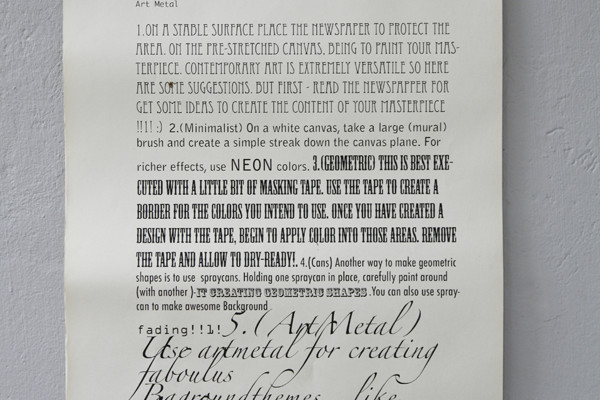 Art Metal
1.ON A STABLE SURFACE PLACE THE NEWSPAPER TO PROTECT THE
AREA. ON THE PRE-STRETCHED CANVAS, BEING TO PAINT YOUR MAS-
TERPIECE. CONTEMPORARY ART IS EXTREMELY VERSATILE SO HERE
ARE SOME SUGGESTIONS. BUT FIRST - READ THE NEWSPAPPER FOR
GET SOME IDEAS TO CREATE THE CONTENT OF YOUR MASTERPIECE
!!1! :) 2.(Minimalist) On a white canvas, take a large (mural)
brush and create a simple streak down the canvas plane. For
richer effects, use NEON colors. 3.(GEOMETRIC) THIS IS BEST EXE-
CUTED WITH A LITTLE BIT OF MASKING TAPE. USE THE TAPE TO CREATE A
BORDER FOR THE COLORS YOU INTEND TO USE. ONCE YOU HAVE CREATED A
DESIGN WITH THE TAPE, BEGIN TO APPLY COLOR INTO THOSE AREAS. REMOVE
THE TAPE AND ALLOW TO DRY-READY!. 4.(Cans) Another way to make geometric
shapes is to use spraycans. Holding one spraycan in place, carefully paint around
(with another )-IT CREATING GEOMETRIC SHAPES .You can also use spray-
can to make awesome Background
fading!!1!5.(ArtMetal)
Use artmetal for creating
faboulus
Bagroundthemes like